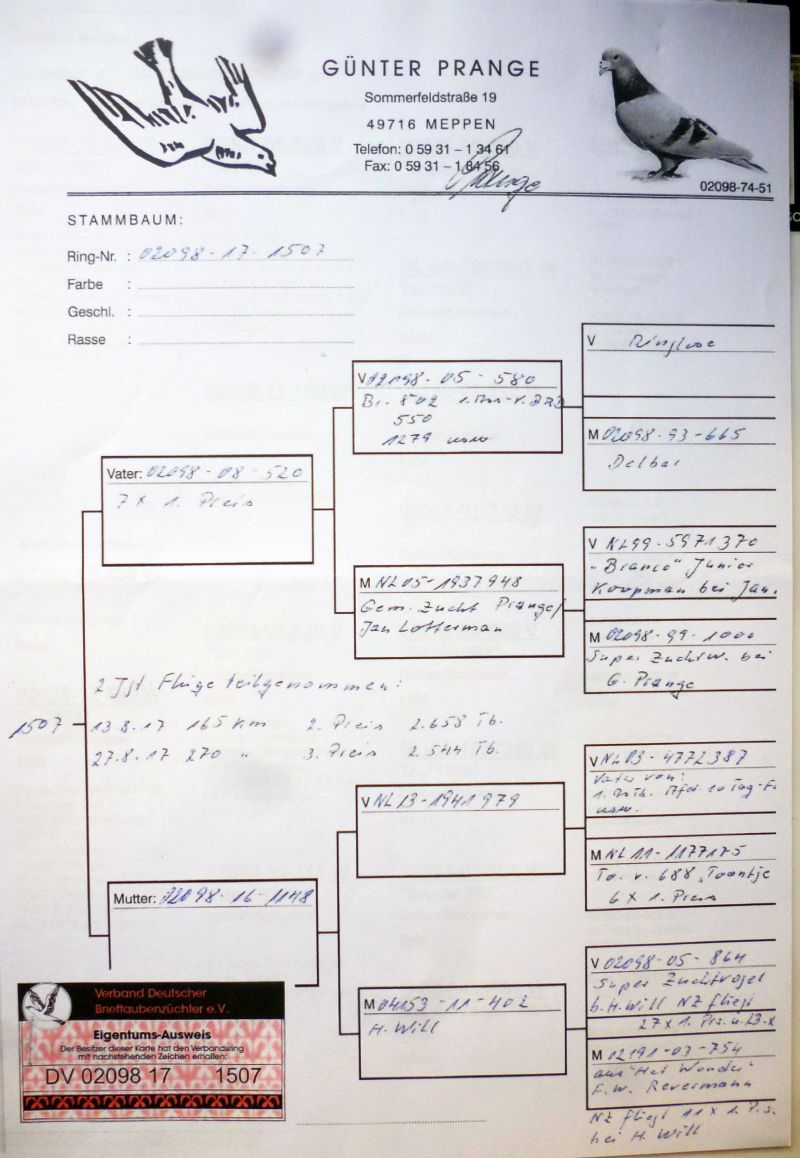 GÜNTER PRANGE
Sommerfeldstraße 19
49716 MEPPEN
Telefon: 0 59 31 – 1 34 61
Fax: 0 59 31 – 1 84 56
Prange
02098-74-51
STAMMBAUM:
Ring-Nr. : 02098-17-1507
Farbe :
Geschl. :
Rasse :
V Ringlose
M 02098-93-665
Delbar
V 02098-05-580
Br. 802
550
1279 usw
Vater: 02098-08-520
7 x 1. Preis
V NL99-5971370
"Branco" Junior
Koopman bei Jan.
M NL05-1937948
Gem. Zucht Prange/
Jan Lotterman
M 02098-99-1000
Super Zuchtw. bei
G. Prange
2 Jgt. Flüge teilgenommen:
1507
13.8.17 165 Km 2. Preis 2.658 Tb.
27.8.17 270 " 3. Preis 2.544 Tb.
V NL03-4772387
Vater von:
usw.
V NL13-1941979
M NL11-1177175
To. v. 688 "Toontje
6 x 1. Preis
Mutter: 02098-16-1148
V 02098-05-864
Super Zuchtvogel
b. H. Will NZ fliegt
27 x 1. Prs.
M 04153-11-402
H. Will
M 12191-03-754
aus "Het Wonder"
F. W. Revermann
NZ fliegt 11 x 1. Prs.
bei H. Will
Verband Deutscher
Brieftaubenzüchter e.V.
Eigentums-Ausweis
Der Besitzer dieser Karte hat den Verbandsring
mit nachstehenden Zeichen erhalten:
DV 02098 17 1507